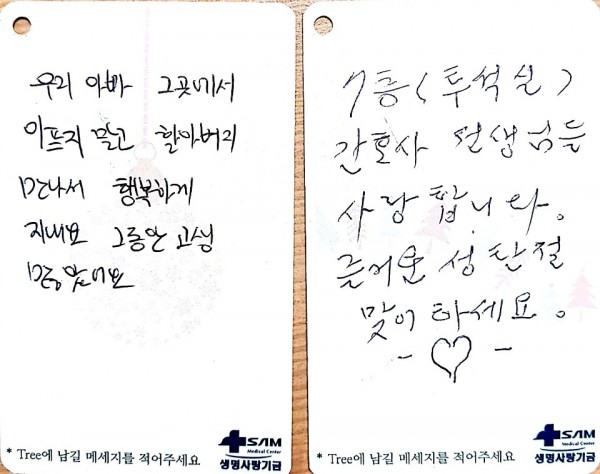 우리 아빠 그곳에서
아프지 말고 할아버지
만나서 행복하게
지내요 그동안 고생
많았어요
SAM
Medical Center
생명사랑기금
* Tree에 남길 메세지를 적어주세요
7층(투석실)
간호사 선생님들
사랑합니다.
즐거운 성탄절
맞이하세요.
- ♡ -
SAM
Medical Center
생명사랑기금
* Tree에 남길 메세지를 적어주세요